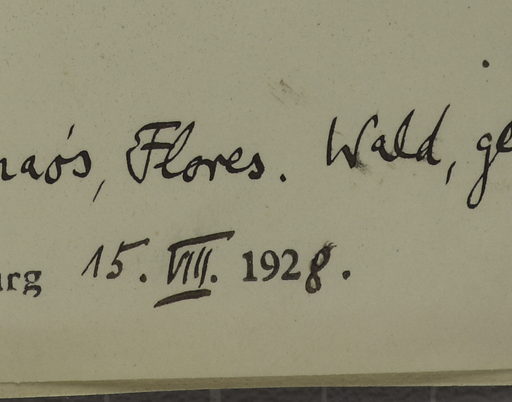 naós, Flores. Wald, ge
urg 15. VIII. 1928.